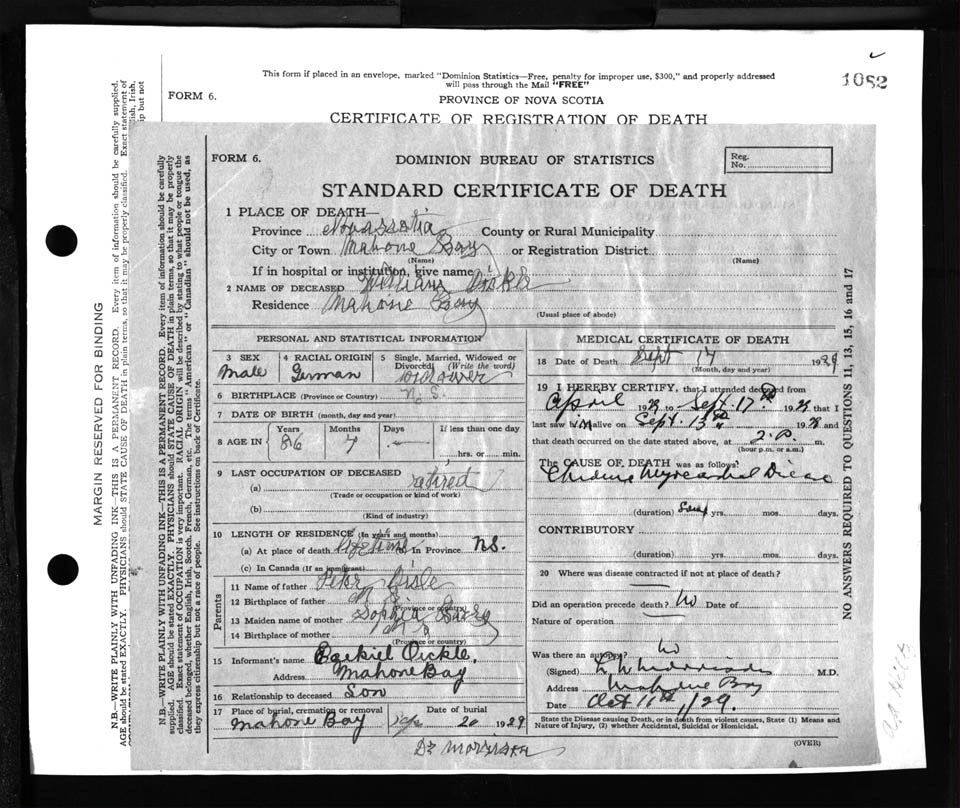 This form if placed in an envelope, marked "Dominion Statistics—Free, penalty for improper use, $300," and properly addressed
will pass through the Mail "FREE"
1082
FORM 6.
PROVINCE OF NOVA SCOTIA
CERTIFICATE OF REGISTRATION OF DEATH
MARGIN RESERVED FOR BINDING
N.B.—WRITE PLAINLY WITH UNFADING INK—THIS IS A PERMANENT RECORD. Every item of information should be carefully supplied.
AGE should be stated EXACTLY. PHYSICIANS should STATE CAUSE OF DEATH in plain terms, so that it may be properly classified. Exact statement of
N.B.—WRITE PLAINLY WITH UNFADING INK—THIS IS A PERMANENT RECORD. Every item of information should be carefully
supplied. AGE should be stated EXACTLY. PHYSICIANS should STATE CAUSE OF DEATH in plain terms, so that it may be properly
classified. Exact statement of OCCUPATION is very important. RACIAL ORIGIN will be described by stating to what people or tongue the
deceased belonged, whether English, Irish, Scotch, French, German, etc. The terms "American" or "Canadian" should not be used, as
they express citizenship but not a race of people. See instructions on back of Certificate.
FORM 6.
DOMINION BUREAU OF STATISTICS
Reg.
No.
STANDARD CERTIFICATE OF DEATH
1 PLACE OF DEATH—
Province Novascotia County or Rural Municipality
City or Town Mahone Bay or Registration District
(Name) (Name)
If in hospital or institution, give name
2 NAME OF DECEASED William
Residence Mahone Bay
(Usual place of abode)
PERSONAL AND STATISTICAL INFORMATION
3 SEX Male
4 RACIAL ORIGIN German
5 Single, Married, Widowed or Divorced (Write the word) Widower
6 BIRTHPLACE (Province or Country) N.S.
7 DATE OF BIRTH (month, day and year)
8 AGE IN Years Months Days If less than one day
86 7 — hrs. or min.
9 LAST OCCUPATION OF DECEASED
(a) retired
(Trade or occupation or kind of work)
(b)
(Kind of industry)
10 LENGTH OF RESIDENCE (In years and months)
(a) At place of death (b) In Province NS.
(c) In Canada (If an immigrant)
Parents
11 Name of father Peter
12 Birthplace of father
(Province or country)
13 Maiden name of mother Sophia
14 Birthplace of mother
(Province or country)
15 Informant's name Ezekiel Oickle,
Address Mahone Bay
16 Relationship to deceased Son
17 Place of burial, cremation or removal Date of burial
Mahone Bay 20 1929
MEDICAL CERTIFICATE OF DEATH
18 Date of Death Sept 17 1929
(Month, day and year)
19 I HEREBY CERTIFY, that I attended deceased from
April 1929 to Sept. 17th 1929 that I
last saw him alive on Sept. 1929
that death occurred on the date stated above, at 2. P. m.
(hour p.m. or a.m.)
The CAUSE OF DEATH was as follows:
Chronic Myocardial Disease
(duration) yrs. mos. days.
CONTRIBUTORY
(duration) yrs. mos. days.
20 Where was disease contracted if not at place of death?
Did an operation precede death? No Date of
Nature of operation
Was there an autopsy? No
(Signed) M.D.
Address Mahone Bay
Date Oct 11th, /29.
State the Disease causing Death, or in death from violent causes, State (1) Means and
Nature of Injury, (2) whether Accidental, Suicidal or Homicidal.
(OVER)
NO ANSWERS REQUIRED TO QUESTIONS 11, 13, 15, 16 and 17